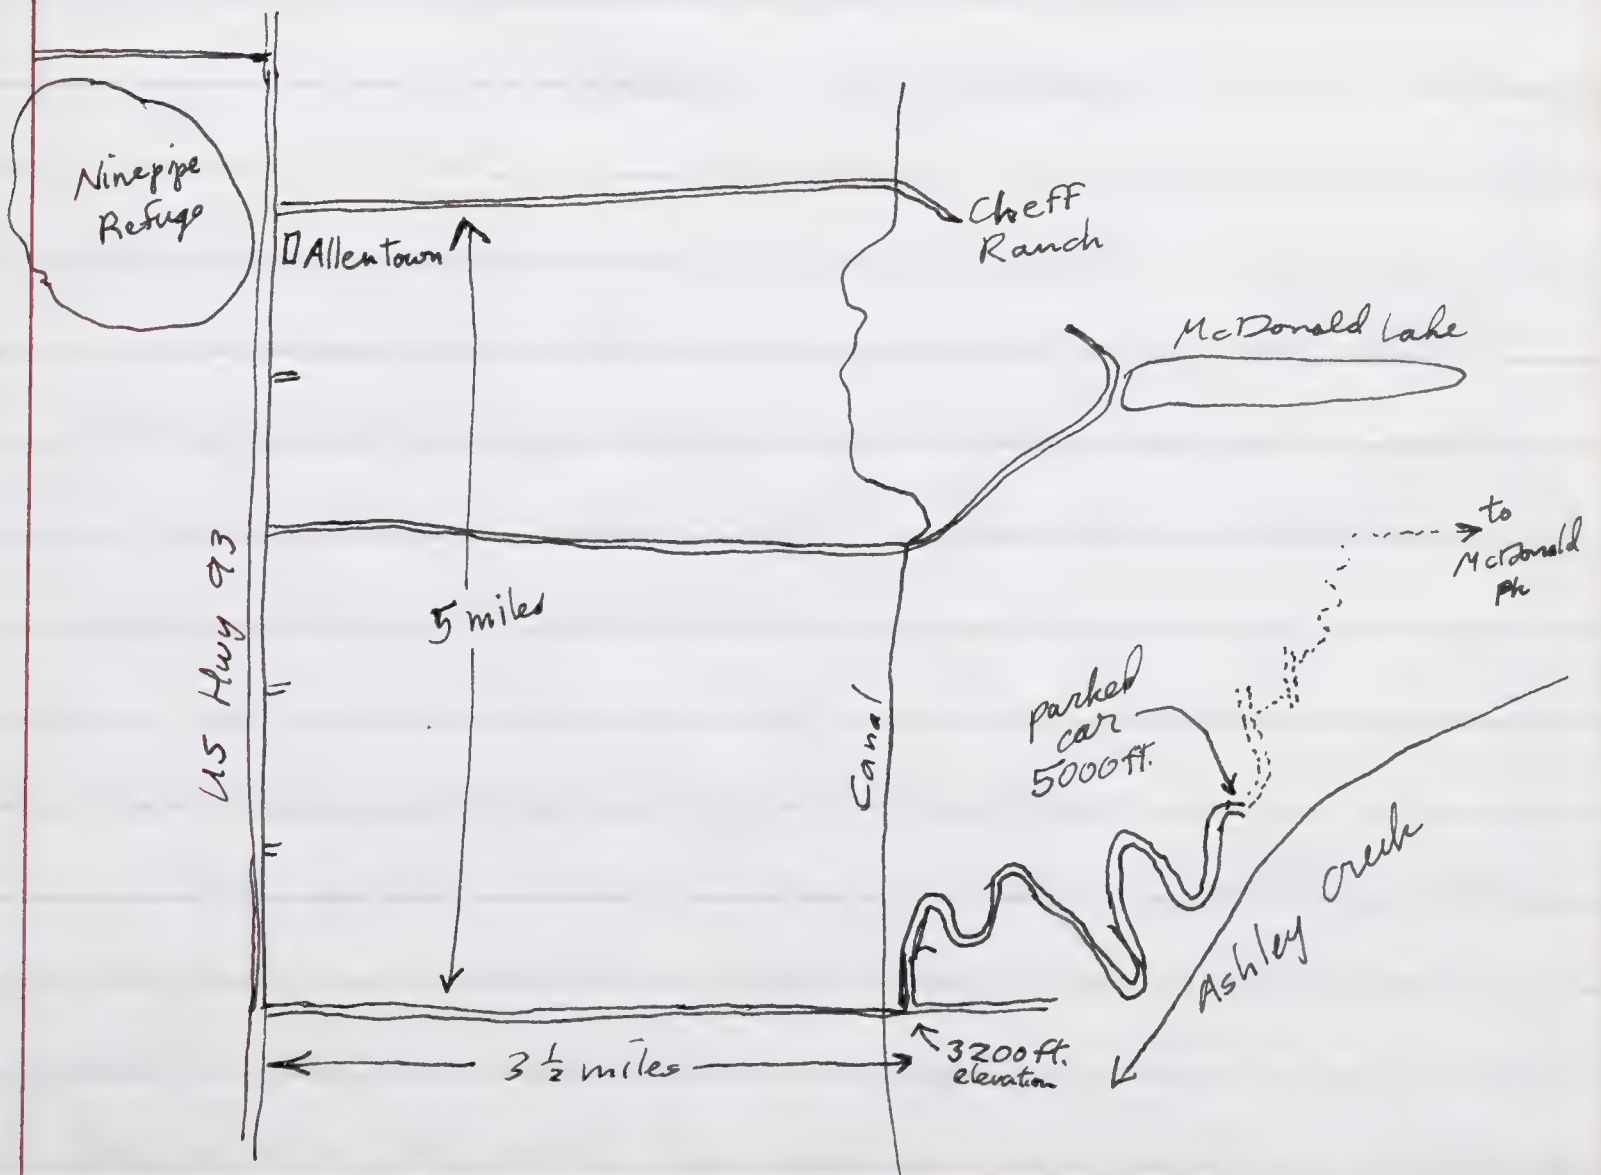 Ninepipe
Refuge
Allentown
Cheff
Ranch
McDonald Lake
to
McDonald
Pk
US Hwy 93
5 miles
Canal
parked
car
5000ft.
Ashley Creek
3 1/2 miles
3200ft.
elevation